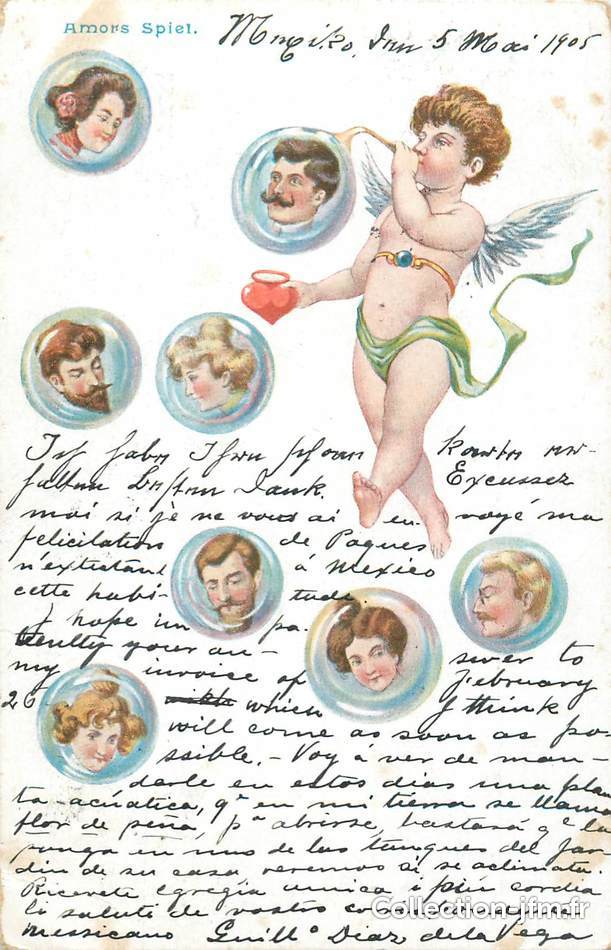 Amors Spiel.
Mexiko, den 5 Mai 1905
Ich habe Ihre schon Karte er-
halten Besten Dank. Excussez
moi si je ne vous ai envoyé ma
felicitation de Paques
n'existant à Mexico
cette habi- tude.
I hope im pa-
tently your an- swer to
my invoice of February
26 which I think
will come as soon as po-
ssible. - Voy á ver de man-
darle en estos dias una plan
ta acuática, qe en mi tierra se llama
flor de peña, pa abrirse, bastará qe la
ponga en uno de los tanques del jar
din de su casa veremos si se aclimata.
Ricevete Egregia amica i piu cordia
li saluti de vostro
Messicano Guillo Diaz de la Vega
Collection-jfm.fr